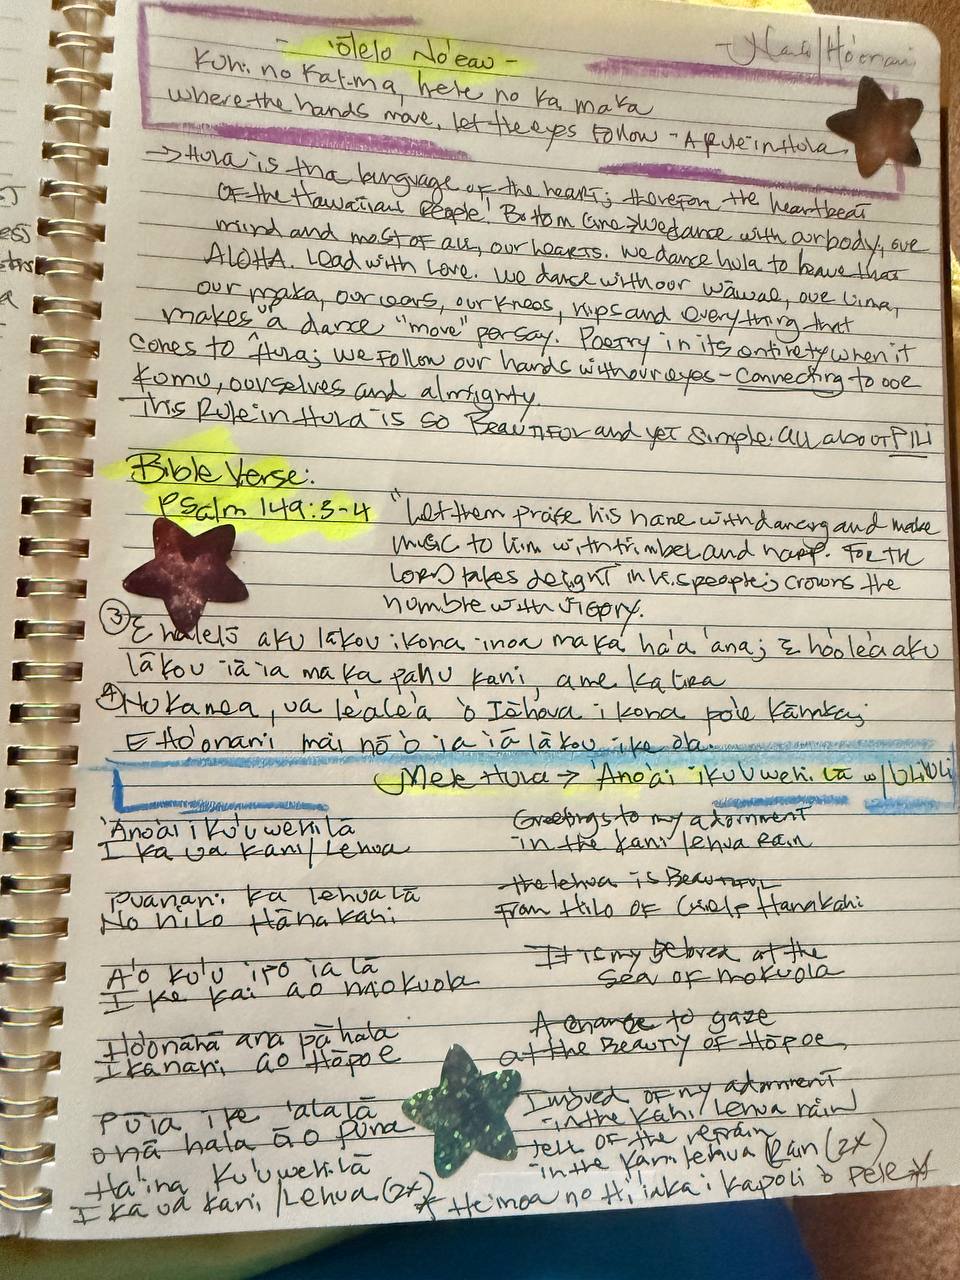 - 'ōlelo No'eau -
Kuhi no ka lima, hele no ka maka
where the hands move, let the eyes follow - A Rule in Hula.
→ Hula is tha language of the heart; therefore the heartbeat
of the Hawaiian People! Bottom line → we dance with our body, our
mind and most of all, our hearts. We dance hula to leave that
ALOHA. Lead with Love. We dance with our wāwae, our lima,
our maka, our ears, our knees, hips and everything that
makes up a dance "move" per say. Poetry in its entirety when it
comes to Hula; we follow our hands with our eyes - Connecting to our
Kumu, ourselves and almighty.
This Rule in Hula is so Beautiful and yet simple. All about PILI
Bible Verse:
Psalm 149:3-4 "Let them praise his name with dancing and make
music to him with timbrel and harp. For the
LORD takes delight in his people; crowns the
humble with victory.
③ E halelū aku lākou i kona inoa ma ka ha'a 'ana; E ho'ole'a aku
lākou iā ia ma ka pahu kani, a me ka lira
④ No ka mea, ua le'ale'a 'o Iēhova i kona po'e kānaka;
E Ho'onani mai nō 'o ia iā lākou i ke ola.
Mele Hula → 'Ano'ai i ku'u wehi lā w/'ūlili
'Ano'ai i ku'u wehi lā Greetings to my adornment
I ka ua kani/Lehua in the kani lehua Rain
Puanani ka lehua lā the lehua is Beautiful
No hilo Hānakahi From Hilo of Chief Hanakahi
A'o ku'u ipo ia lā It is my beloved at the
I ke kai ao mokuola sea of mokuola
Ho'onānā ana pā hala A chance to gaze
I ka nani ao Hōpoe at the Beauty of Hōpoe,
Pūia i ke 'ala lā Imbued of my adornment
onā hala āo Puna in the Kani/Lehua rain
Ha'ina Ku'u wehi lā tell of the refrain
I ka ua kani/Lehua (2x) in the kani lehua Rain (2x)
* He inoa no Hi'iaka i ka poli o Pele *